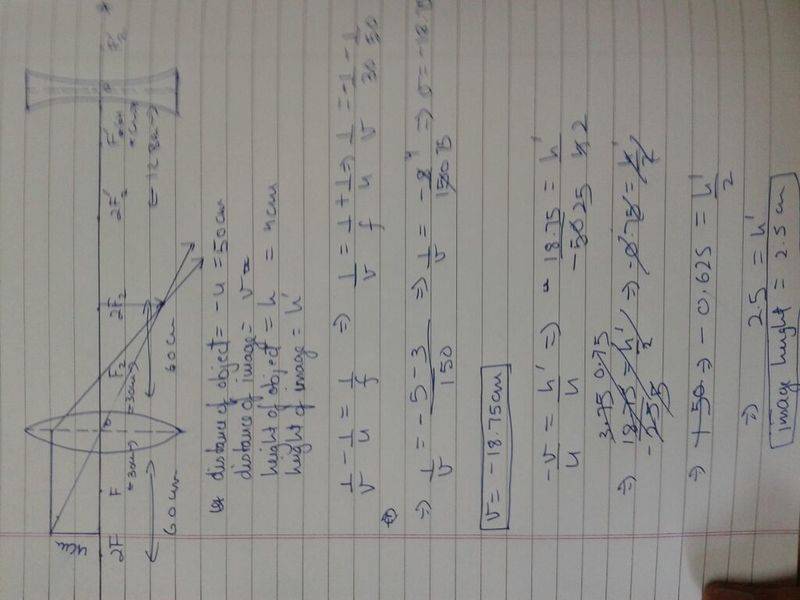 4cm
2F F O F₂ 2F₂ 2F₂' F' O F₂'
←30cm→ ←30cm→
60cm 60cm 12 cm
distance of object = -u = 50cm
distance of image = v
height of object = h = 4cm
height of image = h'
1/v - 1/u = 1/f ⇒ 1/v = 1/f + 1/u ⇒ 1/v = -1/30 - 1/50
⇒ 1/v = -5-3/150 ⇒ 1/v = -8/150 ⇒ v = -18.75
v = -18.75cm
-v/u = h'/h ⇒ - 18.75/-50 = h'/4
⇒ 18.75/-25 = h'/2 ⇒ -0.75 = h'/2
⇒ +50 ⇒ - 0.625 = h'/2
⇒ 2.5 = h'
image height = 2.5 cm